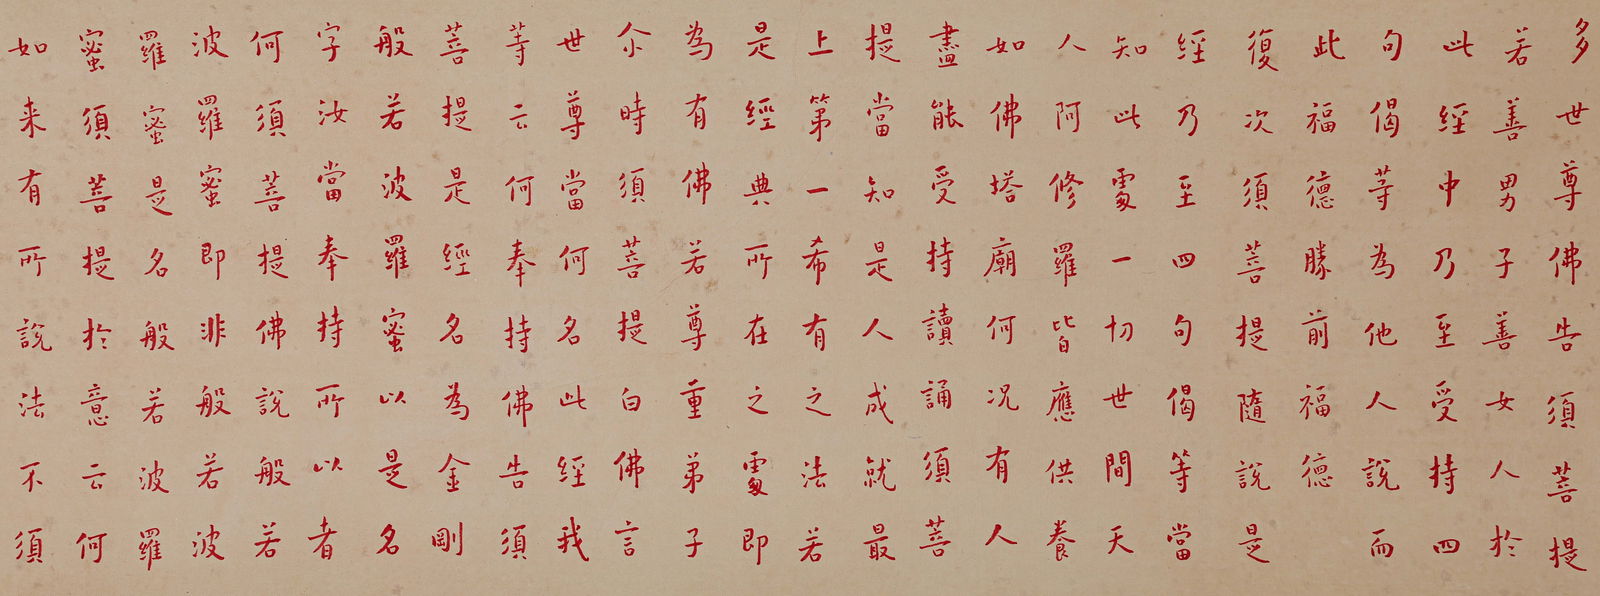 多世尊佛告須菩提
若善男子善女人於
此經中乃至受持四
句偈等為他人說而
此福德勝前福德
復次須菩提隨說是
經乃至四句偈等當
知此處一切世間天
人阿修羅皆應供養
如佛塔廟何况有人
盡能受持讀誦須菩
提當知是人成就最
上第一希有之法若
是經典所在之處即
為有佛若尊重弟子
尒時須菩提白佛言
世尊當何名此經我
等云何奉持佛告須
菩提是經名為金剛
般若波羅蜜以是名
字汝當奉持所以者
何須菩提佛說般若
波羅蜜即非般若波
羅蜜是名般若波羅
蜜須菩提於意云何
如来有所說法不須